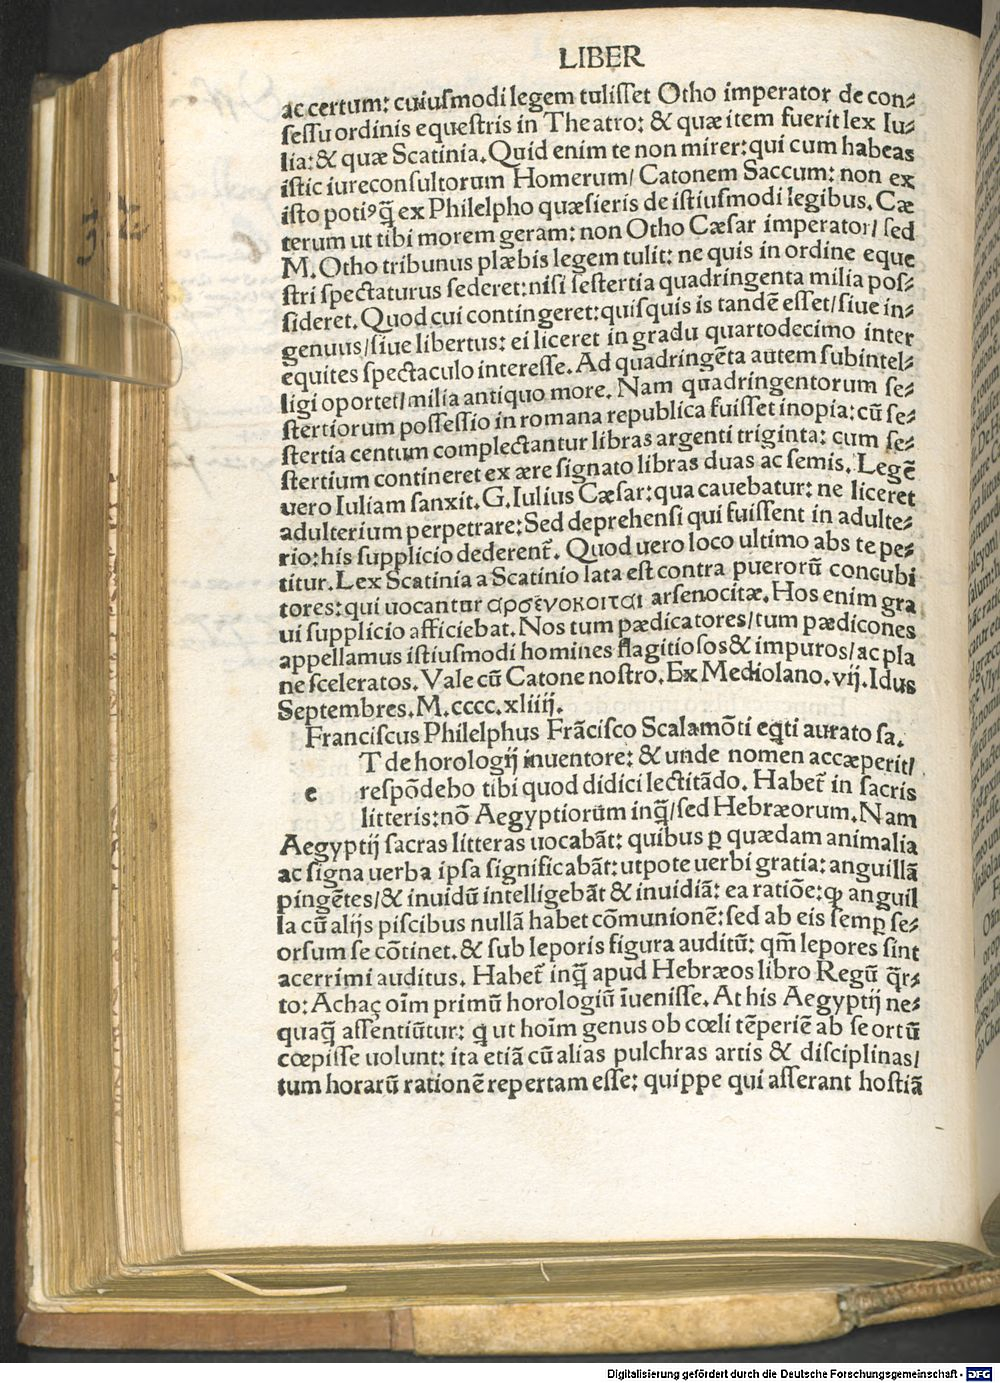 LIBER
ac certum: cuiusmodi legem tulisset Otho imperator de con⸗
sessu ordinis equestris in Theatro: & quæ item fuerit lex Iu⸗
lia: & quæ Scatinia. Quid enim te non mirer: qui cum habeas
istic iureconsultorum Homerum/ Catonem Saccum: non ex
isto potiꝰ q̃ ex Philelpho quæsieris de istiusmodi legibus. Cæ
terum ut tibi morem geram: non Otho Cæsar imperator/ sed
M. Otho tribunus plæbis legem tulit: ne quis in ordine eque
stri spectaturus sederet: nisi sestertia quadringenta milia pos⸗
sideret. Quod cui contingeret: quisquis is tandẽ esset/ siue in⸗
genuus/ siue libertus: ei liceret in gradu quartodecimo inter
equites spectaculo interesse. Ad quadringẽta autem subintel⸗
ligi oportet/ milia antiquo more. Nam quadringentorum se⸗
stertiorum possessio in romana republica fuisset inopia: cũ se⸗
stertia centum complectantur libras argenti triginta: cum se⸗
stertium contineret ex ære signato libras duas ac semis. Legẽ
uero Iuliam sanxit. G. Iulius Cæsar: qua cauebatur: ne liceret
adulterium perpetrare: Sed deprehensi qui fuissent in adulte⸗
rio: his supplicio dederent̃. Quod uero loco ultimo abs te pe⸗
titur. Lex Scatinia a Scatinio lata est contra puerorũ concubi
tores: qui uocantur αρσένοκοιται arsenocitæ. Hos enim gra
ui supplicio afficiebat. Nos tum pædicatores/ tum pædicones
appellamus istiusmodi homines flagitiosos & impuros/ ac pla
ne sceleratos. Vale cũ Catone nostro. Ex Mediolano. vij. Idus
Septembres. M. cccc. xliiij.
Franciscus Philelphus Frãcisco Scalamõti eq̃ti aurato sa.
T de horologij inuentore: & unde nomen accæperit/
e respõdebo tibi quod didici lectitãdo. Habet̃ in sacris
litteris: nõ Aegyptiorum inq̃/ sed Hebræorum. Nam
Aegyptij sacras litteras uocabãt: quibus ꝑ quædam animalia
ac signa uerba ipsa significabãt: utpote uerbi gratia: anguillã
pingẽtes/ & inuidũ intelligebãt & inuidiã: ea ratiõe: ꝙ anguil
la cũ alijs piscibus nullã habet cõmunionẽ: sed ab eis semꝑ se⸗
orsum se cõtinet. & sub leporis figura auditũ: qm̃ lepores sint
acerrimi auditus. Habet̃ inq̃ apud Hebræos libro Regũ q̃r⸗
to: Achaç oĩm primũ horologiũ ĩuenisse. At his Aegyptij ne⸗
quaq̃ assentiũtur: q ut hoĩm genus ob cœli tẽperiẽ ab se ortũ
cœpisse uolunt: ita etiã cũ alias pulchras artis & disciplinas/
tum horarũ rationẽ repertam esse: quippe qui asserant hostiã
Digitalisierung gefördert durch die Deutsche Forschungsgemeinschaft - DFG